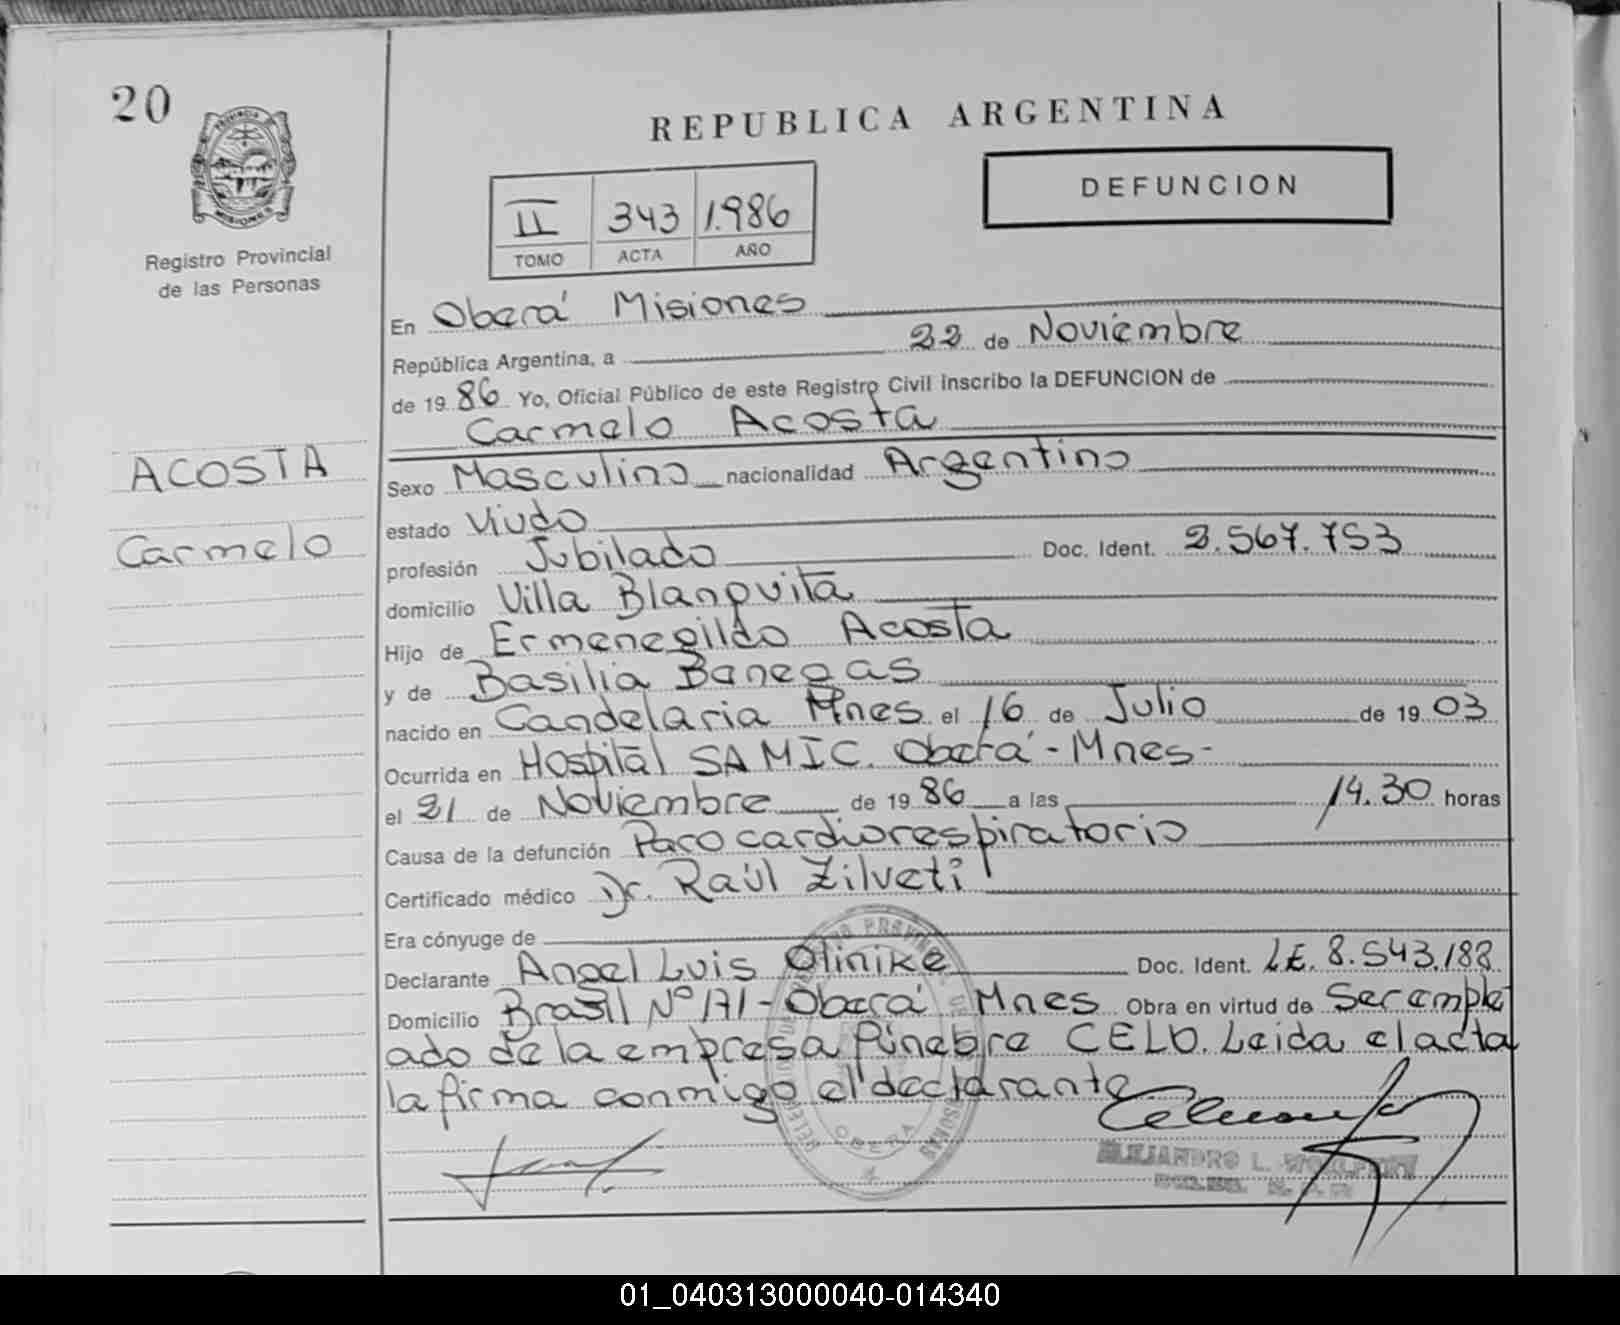 20
PROVINCIA DE
MISIONES
Registro Provincial
de las Personas
REPUBLICA ARGENTINA
DEFUNCION
II 343 1.986
TOMO ACTA AÑO
En Oberá Misiones
República Argentina, a 22 de Noviembre
de 1986 Yo, Oficial Público de este Registro Civil inscribo la DEFUNCION de
Carmelo Acosta
ACOSTA
Carmelo
Sexo Masculino nacionalidad Argentino
estado Viudo
profesión Jubilado Doc. Ident. 2.567.753
domicilio Villa Blanquita
Hijo de Ermenegildo Acosta
y de Basilia Banegas
nacido en Candelaria Mnes el 16 de Julio de 1903
Ocurrida en Hospital SAMIC. Oberá - Mnes -
el 21 de Noviembre de 1986 a las 14.30 horas
Causa de la defunción Parocardiorespiratorio
Certificado médico Dr. Raúl Zilveti
Era cónyuge de
Declarante Angel Luis Olinike Doc. Ident. LE. 8.543.188
Domicilio Brasil Nº 171 - Oberá Mnes Obra en virtud de Ser emple
ado de la empresa fúnebre CELO. Leida el acta
la firma conmigo el declarante
OBERA
ALEJANDRO L.
01_040313000040-014340